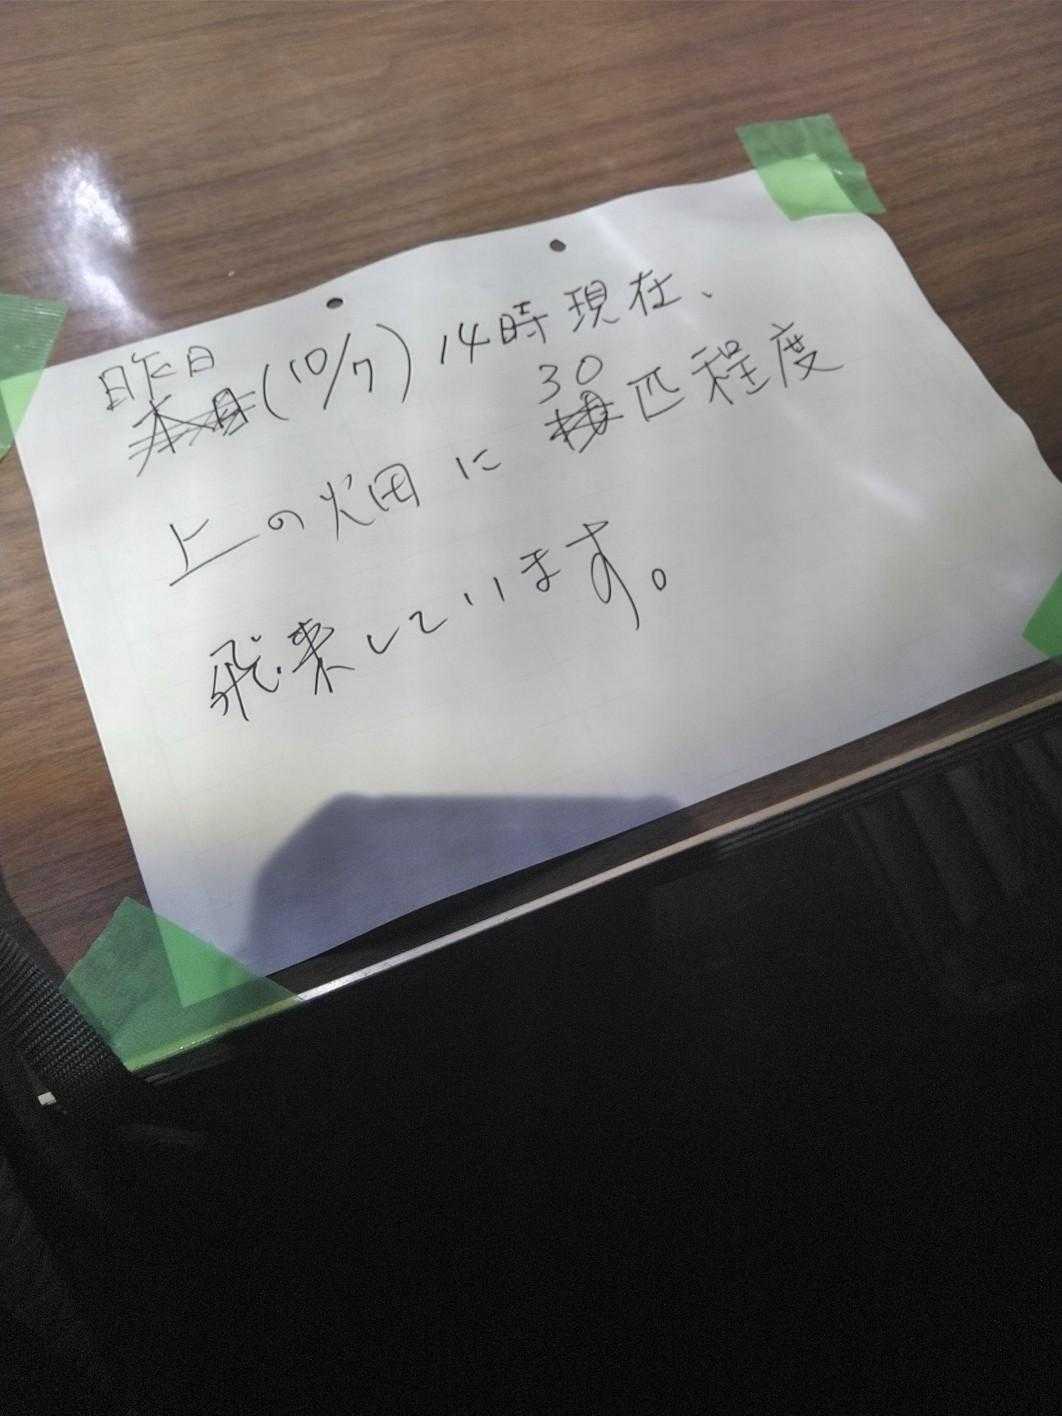 昨日(10/7)14時現在、
上の畑に30匹程度
飛来しています。